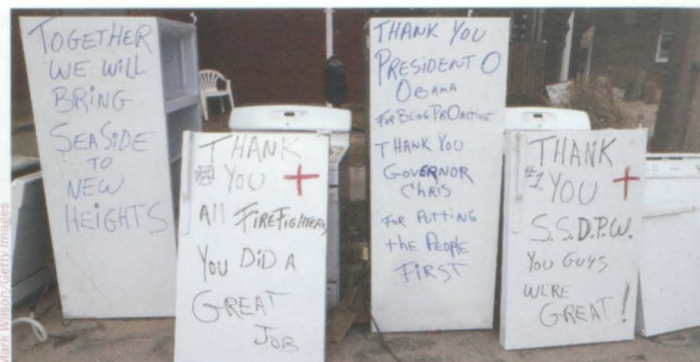 TOGETHER
WE WILL
BRING
SEASIDE
TO
NEW
HEIGHTS
THANK
YOU +
All FIREFIGHTERS
YOU DID A
GREAT
JOB
THANK YOU
PRESIDENT O
OBAMA
FOR BEING PROACTIVE
THANK YOU
GOVERNOR
CHRIS
FOR PUTTING
the PEOPLE
FIRST
THANK
#1 YOU +
S.S.D.P.W.
YOU GUYS
WERE
GREAT!
Mark Wilson/Getty Images